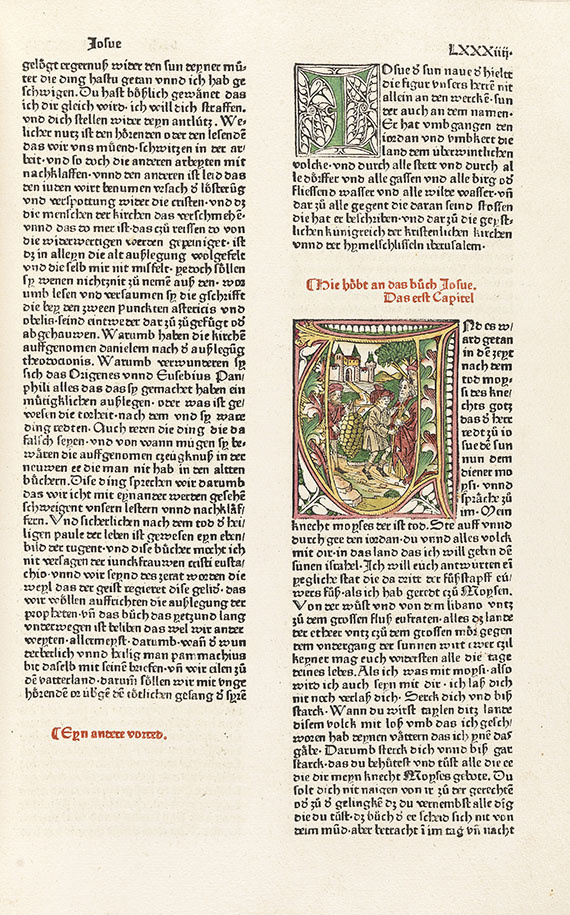 Josue
LXXXiiij.
gelögt ergernuß wider den sun deyner mů/
ter die ding hastu getan vnnd ich hab ge
schwigen. Du hast bößlich gewånet das
ich dir gleich wird. ich will dich straffen.
vnd dich stellen wider deyn antlütz. We/
licher nutz ist den hörenden oder den lesenden
das wir vns müend. schwitzen in der ar/
beit. vnd so doch die anderen arbeyten mit
nachklaffen. vnnd den anderen ist leid das
den iuden wirt benumen vrsach d̕ lösterūg
vnd verspottung wider die cristen. vnd dz
die menschen der kirchen das verschmehē.
vnnd das to mer ist. das czů reissen to von
die widerwertigen werden gepeiniget. ist
dz in alleyn die alt außlegung wolgefelt
vnd die selb mir nit misfelt. yedoch söllen
sy wenen nichtznit zů nemē auß den. wor
umb lesen vnd versaumen sy die gschrifft
die bey den zween punckten astericis vnd
obelis. seind eintweder dar zů zůgefügt od̕
abgehauwen. Warumb haben die kirchē
auffgenomen danielem nach d̕ außlegūg
theodocionis. Warumb verwunderen sy
sich das Origenes vnnd Eusebius Pan/
phili alles das das sy gemachet haben ein
mütigklichen außlegen. oder was ist ge/
wesen die torheit. nach dem vnd sy ware
ding redten. Auch reden die ding die da
falsch seyen. vnd von wann mügen sy be/
wåren die auffgenomen czeügknuß in der
neuwen ee die man nit hab in den altten
büchern. Dise ding sprechen wir darumb
das wir icht mit eynander werden gesehē
schweigent vnsern lestern vnnd nachkläf/
fern. Vnd sicherlichen nach dem tod d̕ hei/
ligen paule der leben ist gewesen eyn eben/
bild der tugent. vnd dise bücher mocht ich
nit versagen der iunckfrauwen cristi eusta/
chio. vnnd wir seynd des zerat worden die
weyl das der geist regieret dise gelid̕. das
wir wöllen auffrichten die außlegung der
propheten. vn̄ das bůch das yetzund lang
vnderwegen ist beliben das wel wir ander
weyten. allermeyst. darumb. wan̄ d̕ wun
derberlich vnnd heilig man pammachius
bit daselb mit seinē briefen. vn̄ wir eilen zů
dē vatterland. darum̄ söllen wir mit vnge
hörendē or übgē dē tödlichen gesang d̕ syrē
Eyn andere vorred.
IOsue d̕ sun naue d̕ hielte
die figur vnsers herrē nit
allein an den werckē. sun
der auch an dem namen.
Er hat vmbgangen den
iordan vnd vmbkert die
land dem überwintlichen
volcke. vnd durch alle stett vnd durch al
le dörffer vnd alle gassen vnd alle birg od̕
fliessend wasser vnd alle wilde wasser. vn̄
dar zů alle gegent die daran seind stossen
die hat er beschriben. vnd dar zů die geyst/
lichen künigreich der kristenlichen kirchen
vnnd der hymelschlisseln iherusalem.
Hie höbt an das bůch Josue.
Das erst Capitel
VNd es w/
ard getan
in dē zeyt
nach dem
tod moy/
si des kne/
chts gotz
das d̕ herr
redt zů io
sue dē sun
nun dem
diener mo
ysi. vnnd
språche zů
im. Mein
knecht moyses der ist tod. Ste auff vnnd
durch gee den iordan. du vnnd alles volck
mit dir. in das land das ich will geben dē
sünen israhel. Ich will euch antwurten ei̅
yegliche stat die da tritt der fůßstapff eü/
wers fůß. als ich hab geredt czů Moysen.
Von der wüst vnd von dem libano vntz
zů dem grossen fluß eufraten. alles dz lande
der etheer vntz czů dem grossen mör gegen
dem vndergang der sunnen wirt ewer czil
keyner mag euch widersten alle die tage
deines lebes. Als ich was mit moysi. also
wird ich auch seyn mit dir. ich laß dich
nit noch verlaß dich. Sterck dich vnd biß
starck. Wann du wirst taylen ditz lande
disem volck mit loß vmb das ich gesch/
woren hab deynen våttern das ich ynē das
gåbe. Darumb sterck dich vnnd biß gar
starck. das du behütest vnd tůst alle die ee
die dir meyn knecht Moyses gebote. Du
solt dich nit naigen von ir zů der gerechtē
od̕ zů d̕ gelingkē dz du vernembst alle dīg
die du tůst. dz bůch d̕ ee scheid sich nit von
deim mūd. aber betracht ī im tag vn̄ nacht